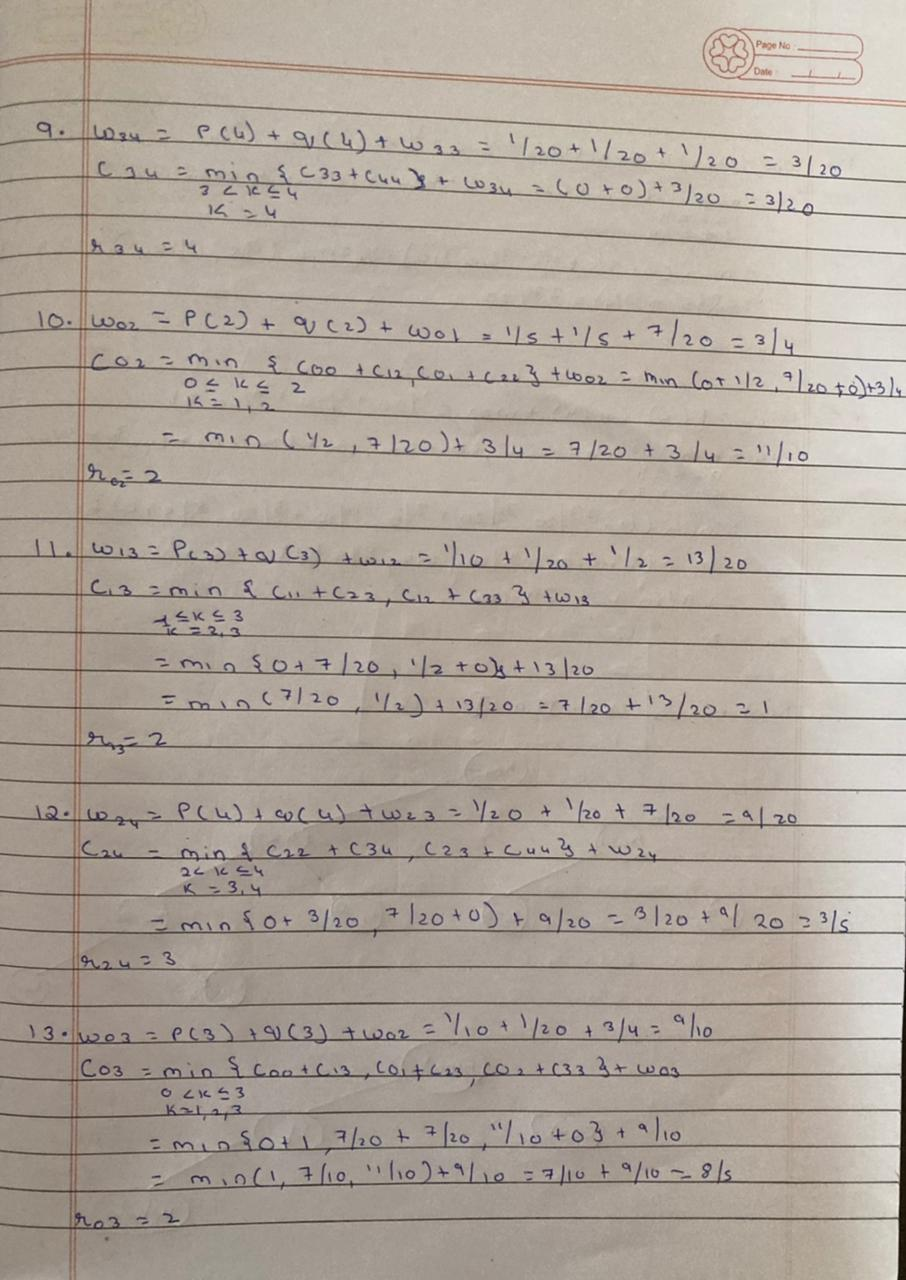 Page No :
Date : / /
9. W34 = P(4) + q(4) + W33 = 1/20 + 1/20 + 1/20 = 3/20
C34 = min { C33 + C44 } + W34 = (0 + 0) + 3/20 = 3/20
3 < K ≤ 4
K = 4
r34 = 4
10. W02 = P(2) + q(2) + W01 = 1/5 + 1/5 + 7/20 = 3/4
C02 = min { C00 + C12, C01 + C22 } + W02 = min (0 + 1/2, 7/20 + 0) + 3/4
0 ≤ K ≤ 2
K = 1, 2
= min (1/2, 7/20) + 3/4 = 7/20 + 3/4 = 11/10
r02 = 2
11. W13 = P(3) + q(3) + W12 = 1/10 + 1/20 + 1/2 = 13/20
C13 = min { C11 + C23, C12 + C33 } + W13
1 ≤ K ≤ 3
K = 2, 3
= min { 0 + 7/20, 1/2 + 0 } + 13/20
= min (7/20, 1/2) + 13/20 = 7/20 + 13/20 = 1
r13 = 2
12. W24 = P(4) + q(4) + W23 = 1/20 + 1/20 + 7/20 = 9/20
C24 = min { C22 + C34, C23 + C44 } + W24
2 < K ≤ 4
K = 3, 4
= min { 0 + 3/20, 7/20 + 0 ) + 9/20 = 3/20 + 9/20 = 3/5
r24 = 3
13. W03 = P(3) + q(3) + W02 = 1/10 + 1/20 + 3/4 = 9/10
C03 = min { C00 + C13, C01 + C23, C02 + C33 } + W03
0 < K ≤ 3
K = 1, 2, 3
= min { 0 + 1, 7/20 + 7/20, 11/10 + 0 } + 9/10
= min (1, 7/10, 11/10) + 9/10 = 7/10 + 9/10 = 8/5
r03 = 2